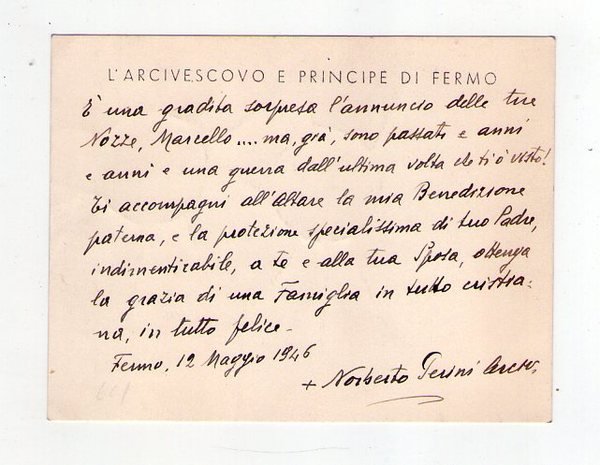 L'ARCIVESCOVO E PRINCIPE DI FERMO
È una gradita sorpresa l'annuncio delle tue
Nozze, Marcello.... ma, già, sono passati e anni
e anni e una guerra dall'ultima volta che ti ò visto!
Ti accompagni all'Altare la mia Benedizione
paterna, e la protezione specialissima di tuo Padre,
indimenticabile, a te e alla tua Sposa, ottenga
la grazia di una Famiglia in tutto cristia-
na, in tutto felice -
Fermo, 12 Maggio 1946
+ Norberto Perini Arciv.